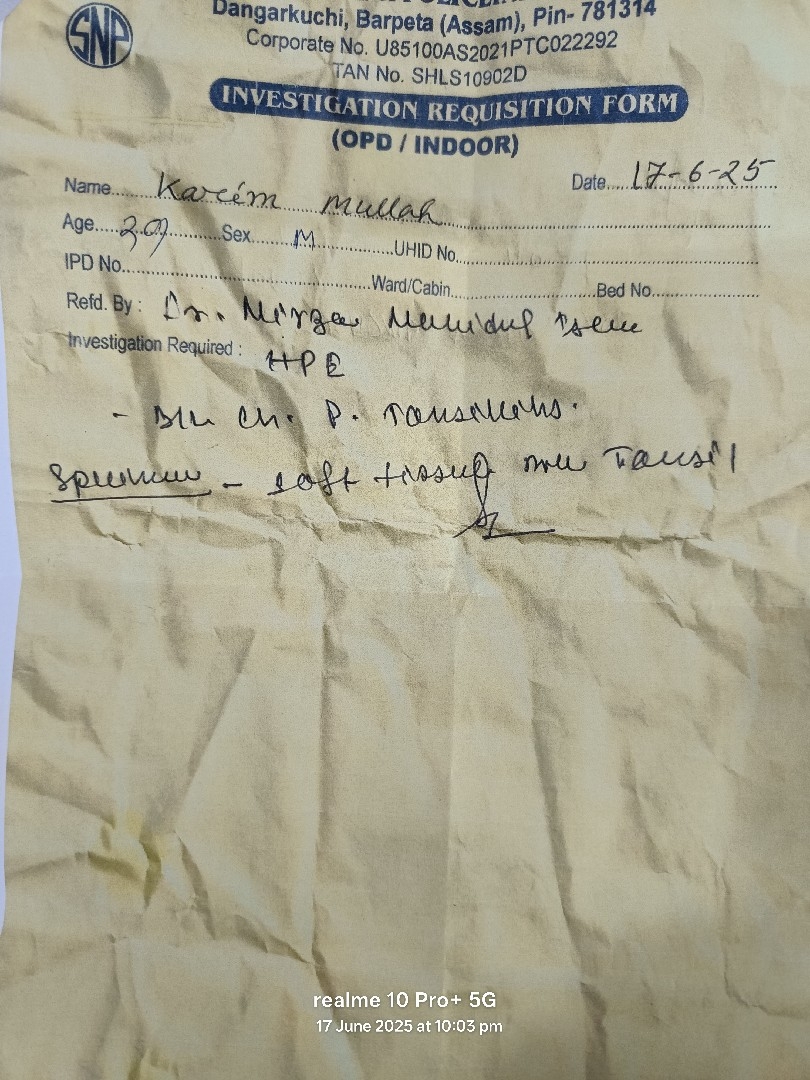 SNP
Dangarkuchi, Barpeta (Assam), Pin- 781314
Corporate No. U85100AS2021PTC022292
TAN No. SHLS10902D
INVESTIGATION REQUISITION FORM
(OPD / INDOOR)
Name Karim Mullah Date 17-6-25
Age Sex M UHID No.
IPD No. Ward/Cabin Bed No.
Refd. By : Dr. Mirza
Investigation Required : HPE
- Ch. P.
Specimen - soft tissue Tonsil
realme 10 Pro+ 5G
17 June 2025 at 10:03 pm